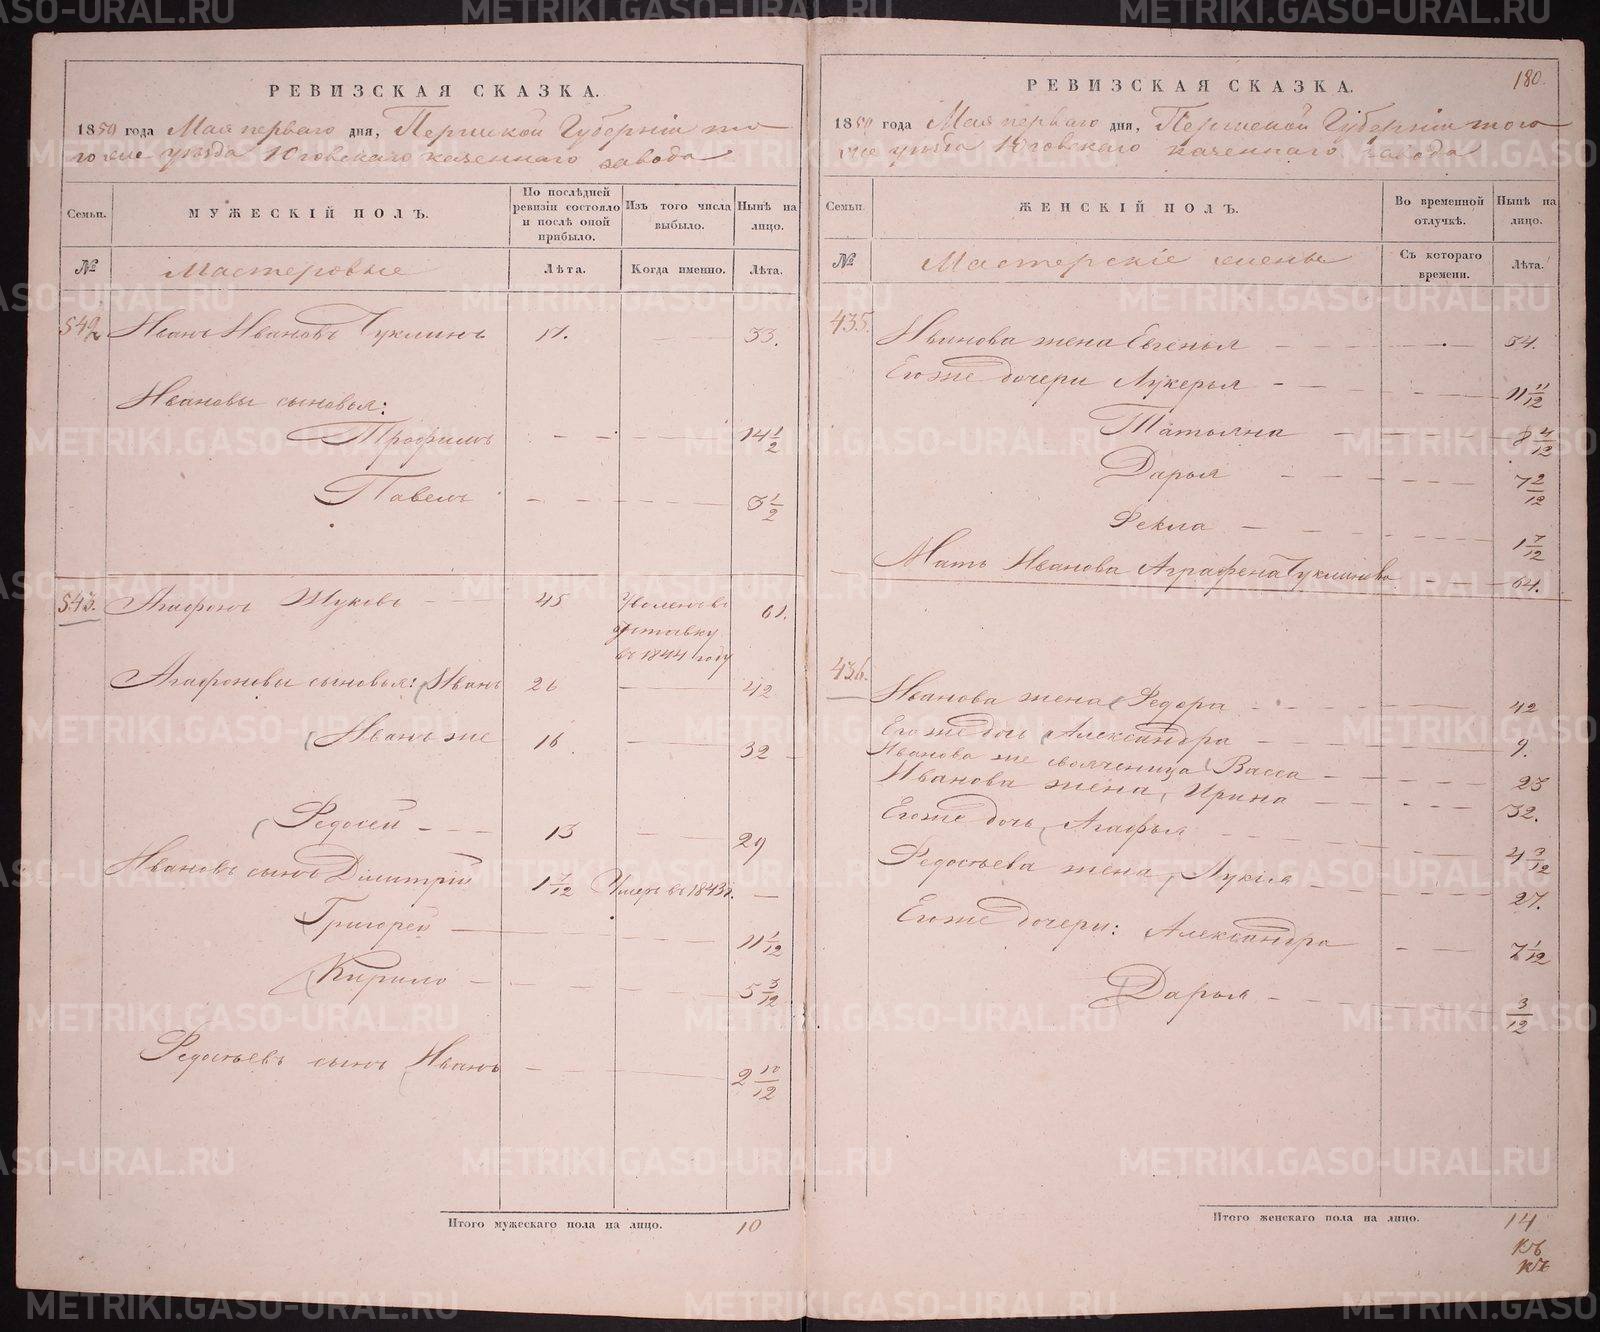 РЕВИЗСКАЯ СКАЗКА.
1850 года Мая перваго дня, Пермской Губерніи то
го же уѣзда Юговскаго казеннаго завода
Семьи.
МУЖЕСКІЙ ПОЛЪ.
По послѣдней ревизіи состояло и послѣ оной прибыло.
Изъ того числа выбыло.
Нынѣ на лицо.
№
Мастеровые
Лѣта.
Когда именно.
Лѣта.
542 Иванъ Ивановъ Чуклинъ 17. 33.
Ивановы сыновья:
Трофимъ 14 1/2
Павелъ 3 1/2
543. Агафонъ Жуковъ 45 Уволенъ въ отставку въ 1844 году 61.
Агафоновы сыновья: Иванъ 26 42
Иванъ же 16 32
Федосей 13 29
Ивановъ сынъ Димитрій 1 7/12 Умеръ въ 1843 г.
Григорей 11 1/12
Кирило 5 3/12
Федосѣевъ сынъ Иванъ 2 10/12
Итого мужескаго пола на лицо. 10
180.
РЕВИЗСКАЯ СКАЗКА.
1850 года Мая перваго дня, Пермской Губерніи того
же уѣзда Юговскаго казеннаго завода
Семьи.
ЖЕНСКІЙ ПОЛЪ.
Во временной отлучкѣ.
Нынѣ на лицо.
№
Мастерскіе жены
Съ котораго времени.
Лѣта.
435. Иванова жена Евгенья 34.
Его же дочери Лукерья 11 11/12
Татьяна 8 4/12
Дарья 7 2/12
Фекла 1 7/12
Мать Иванова Аграфена Чуклинова 64.
436. Иванова жена Федора 42
Его же дочь Александра 9.
Иванова же своячница Васса 23
Иванова жена Ирина 32.
Его же дочь Агафья 4 3/12
Федосѣева жена Лукія 27.
Его же дочери: Александра 7 1/12
Дарья 3/12
Итого женскаго пола на лицо. 14
METRIKI.GASO-URAL.RU